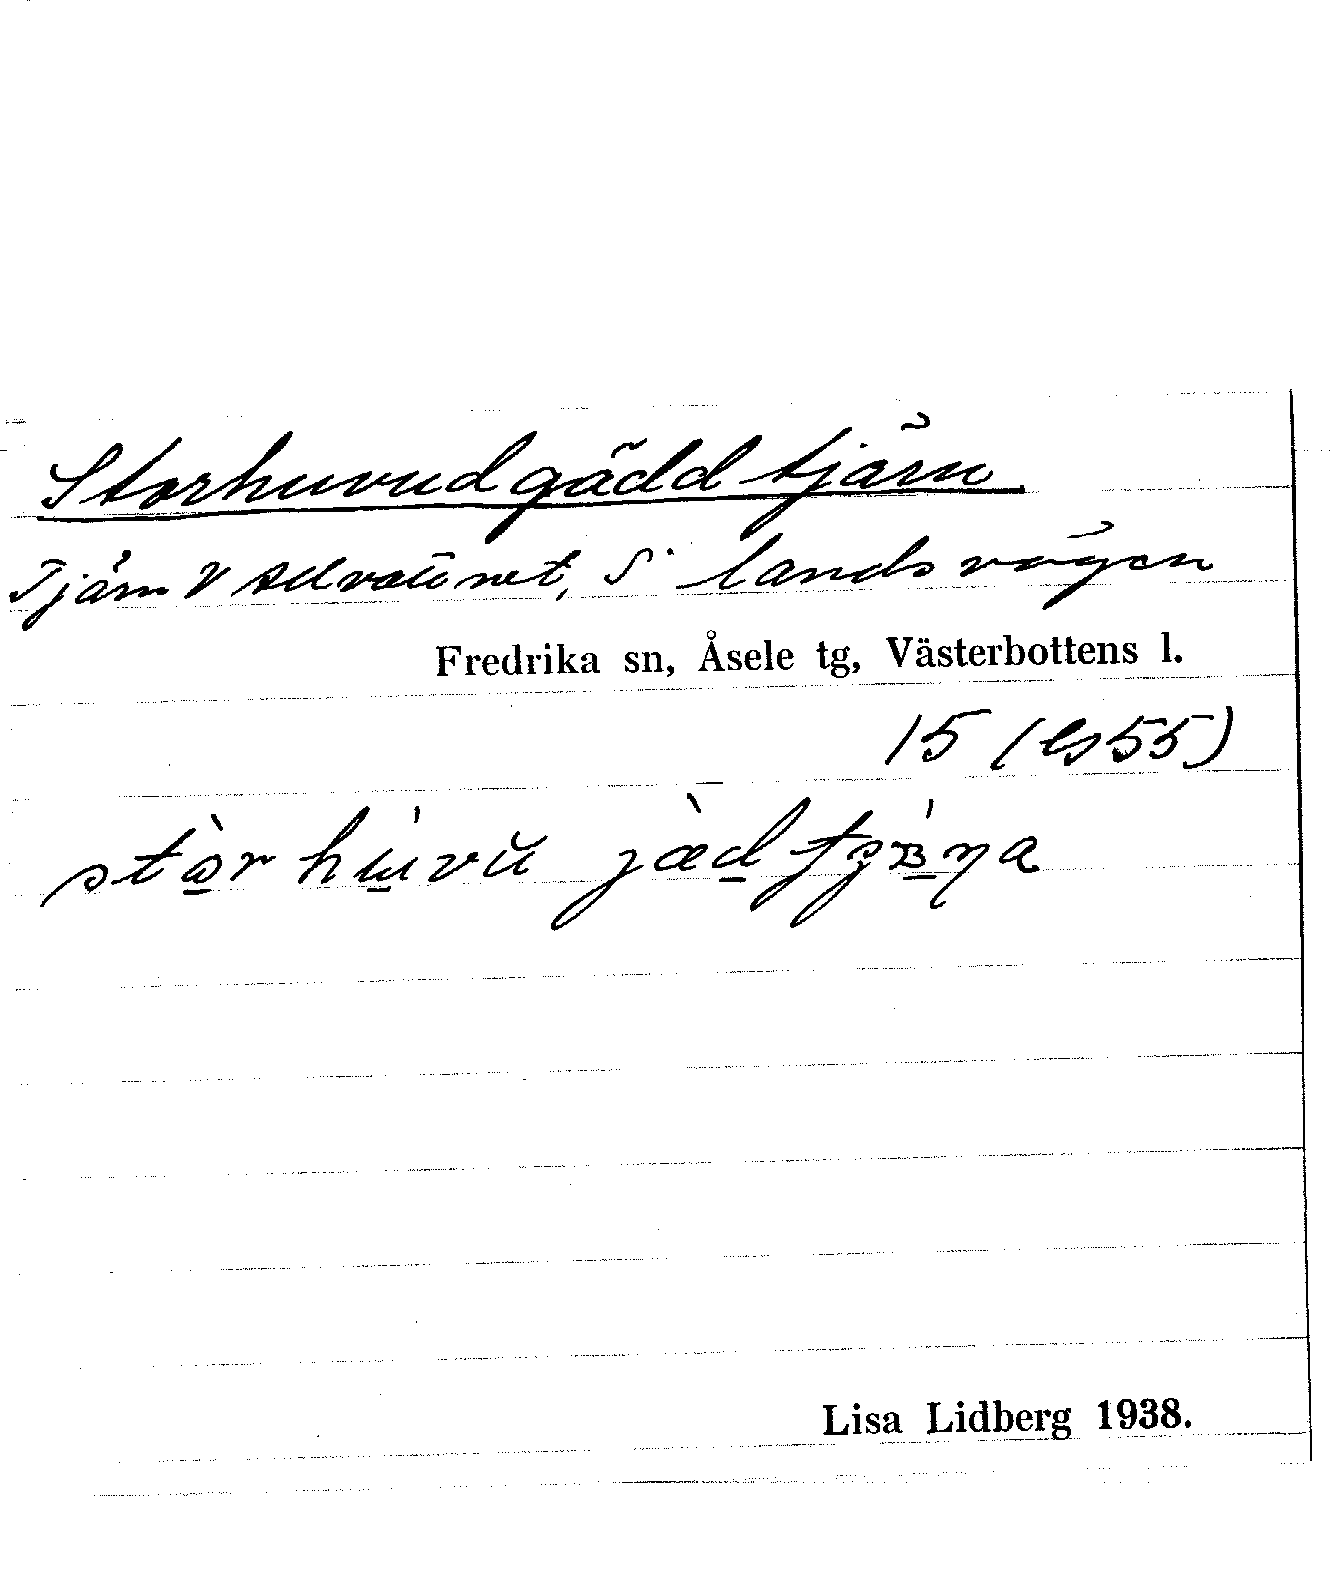 Storhuvudgäddtjärn
Tjärn V Allvattnet, S landsvägen
Fredrika sn, Åsele tg, Västerbottens l.
15 (ls55)
Lisa Lidberg 1938.